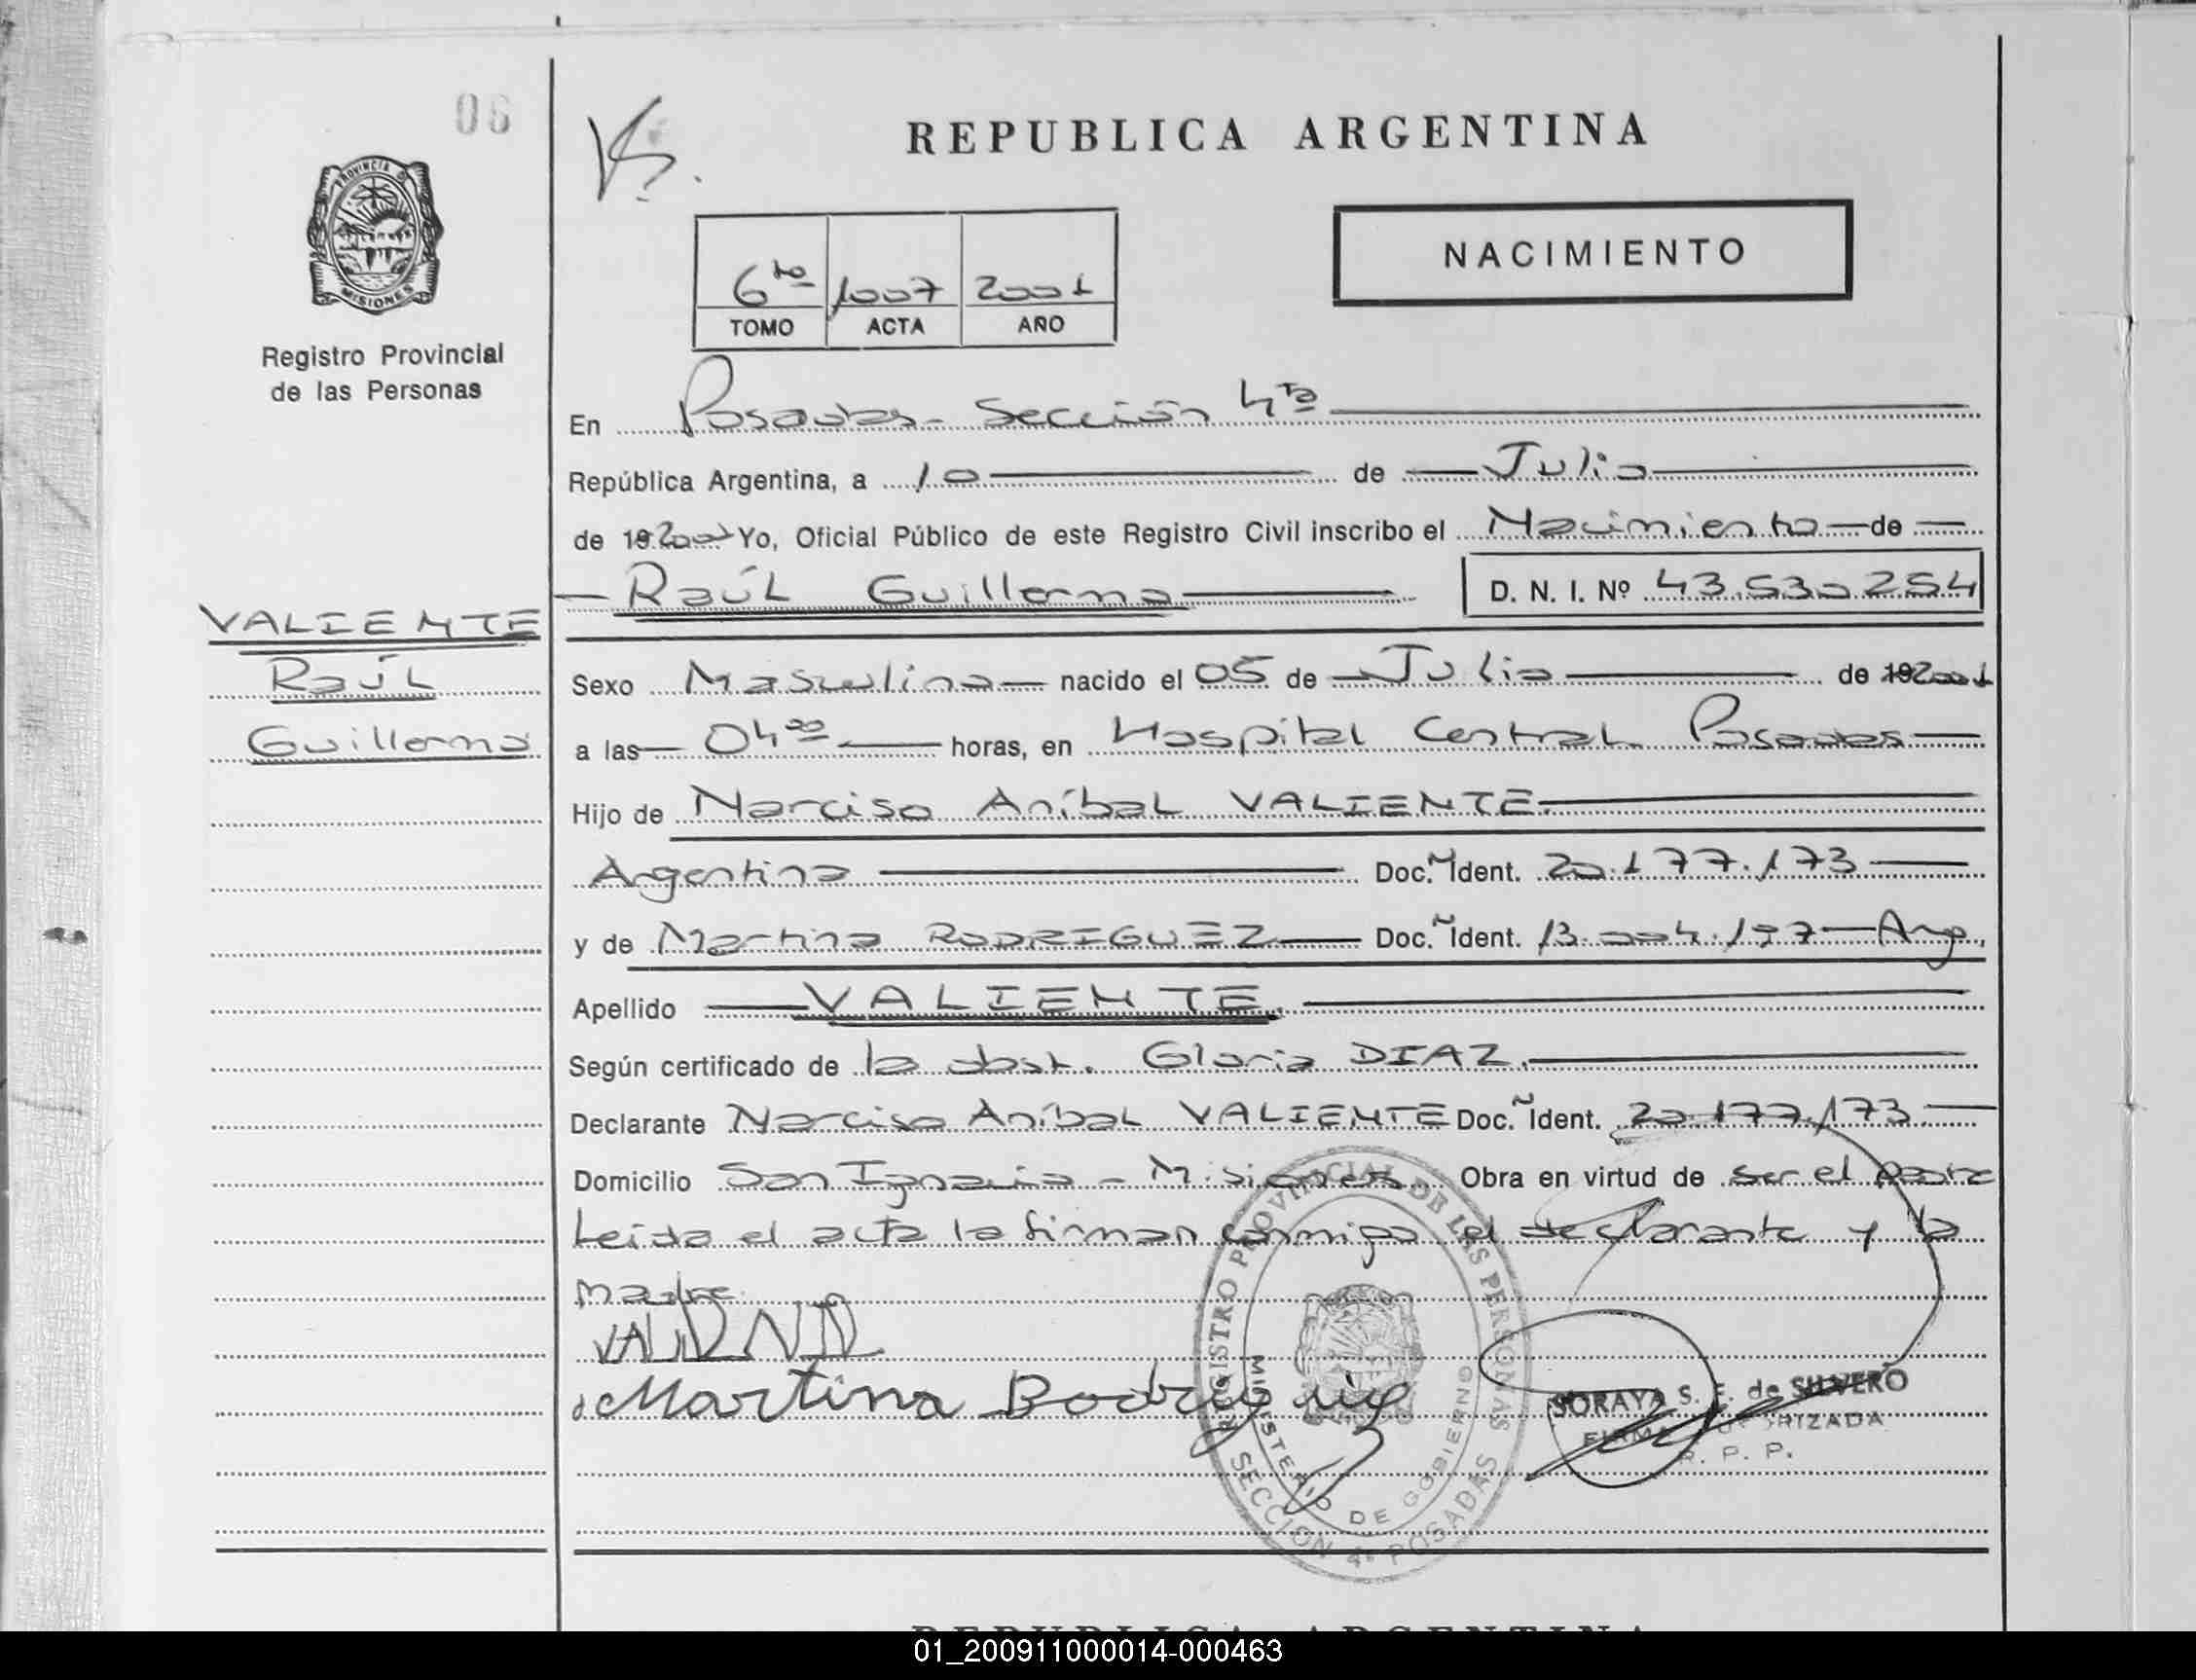 06
REPUBLICA ARGENTINA
PROVINCIA D
MISIONES
Registro Provincial
de las Personas
NACIMIENTO
6to 1007 2001
TOMO ACTA AÑO
En Posadas - Sección 4ta
República Argentina, a 10 de Julio
de 19 2001 Yo, Oficial Público de este Registro Civil inscribo el Nacimiento de
Raúl Guillermo D. N. I. Nº 43.530.254
VALIENTE
Raúl
Guillermo
Sexo Masculino nacido el 05 de Julio de 19 2001
a las 04 00 horas, en Hospital Central Posadas
Hijo de Narciso Aníbal VALIENTE.
Argentino Doc. Ident. 20.177.173
y de Martina RODRIGUEZ Doc. Ident. 13.004.197 Arg.
Apellido VALIENTE.
Según certificado de la obst. Gloria DIAZ.
Declarante Narciso Aníbal VALIENTE Doc. Ident. 20.177.173.
Domicilio San Ignacio - Misiones Obra en virtud de ser el padre
Leída el acta la firman conmigo el declarante y la
madre.
Martina Rodrigue
REGISTRO PROVINCIAL DE LAS PERSONAS
MINISTERIO DE GOBIERNO
SECCION 4ª POSADAS
SORAYA S. E. de SILVERO
FIRMA AUTORIZADA
R. P. P.
REPUBLICA ARGENTINA
01_200911000014-000463